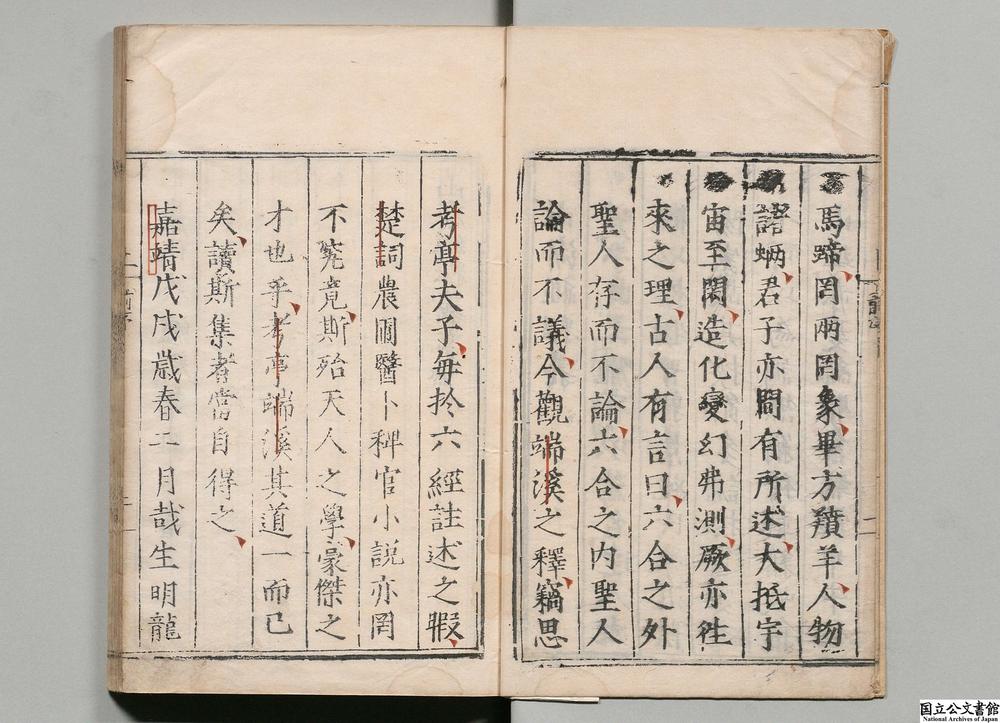 馬蹄罔兩罔象畢方羵羊人物
諸蛃君子亦間有所述大抵宇
宙至闊造化變幻弗測厥亦徃
來之理古人有言曰六合之外
聖人存而不論六合之内聖人
論而不議今觀端溪之釋竊思
考亭夫子每扵六經註述之暇
楚詞農圃醫卜稗官小説亦罔
不究竟斯殆天人之學豪傑之
才也乎考亭端溪其道一而已
矣讀斯集者當自得之
嘉靖戊戌歲春三月哉生明龍
国立公文書館
National Archives of Japan